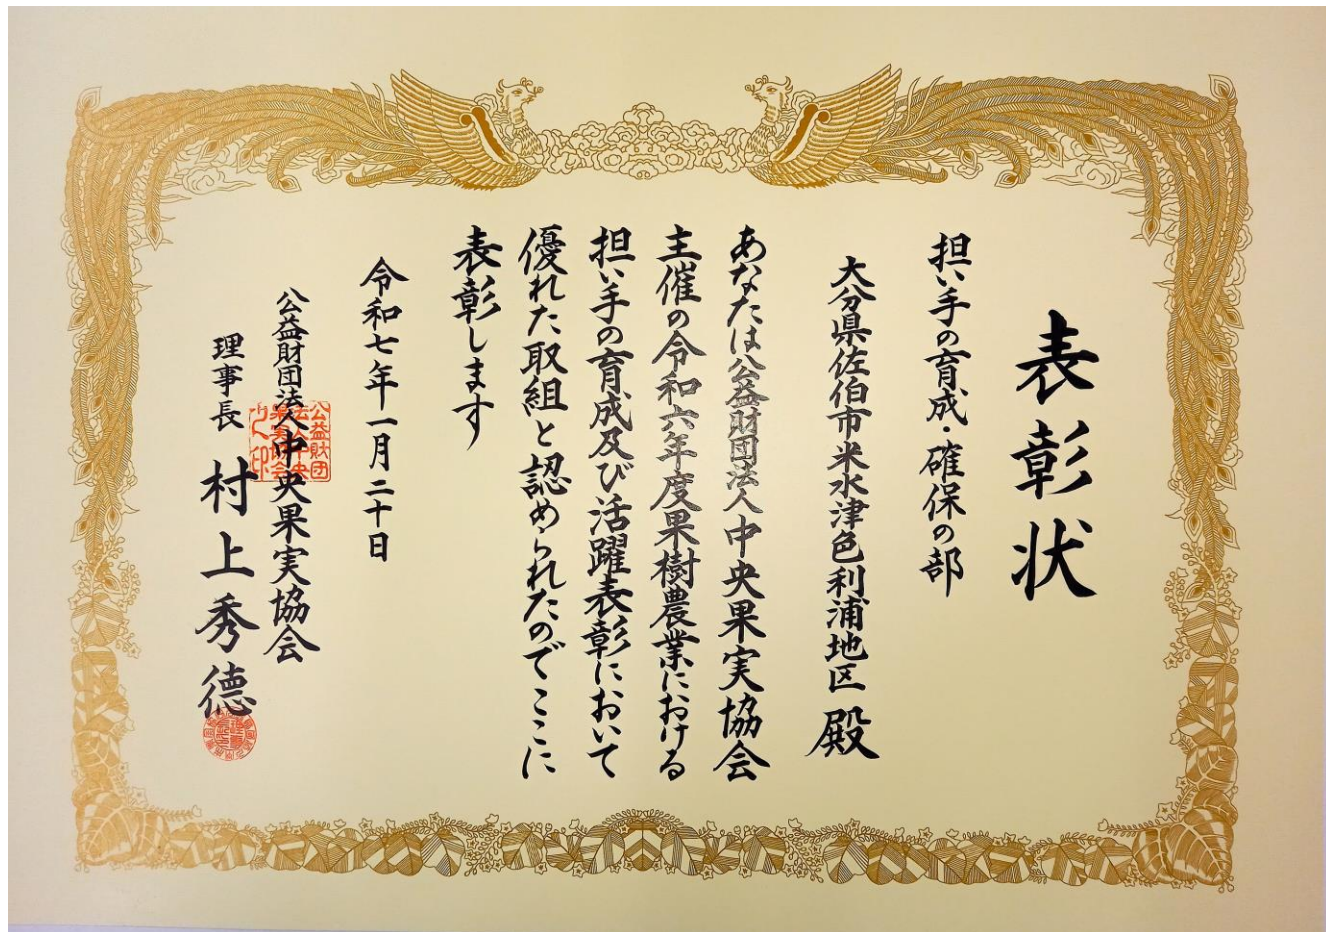 表彰状
担い手の育成・確保の部
大分県佐伯市米水津色利浦地区 殿
あなたは公益財団法人中央果実協会
主催の令和六年度果樹農業における
担い手の育成及び活躍表彰において
優れた取組と認められたのでここに
表彰します
令和七年一月二十日
公益財団法人中央果実協会
理事長 村上秀德
公益財団
法人中央
果実協会
之印